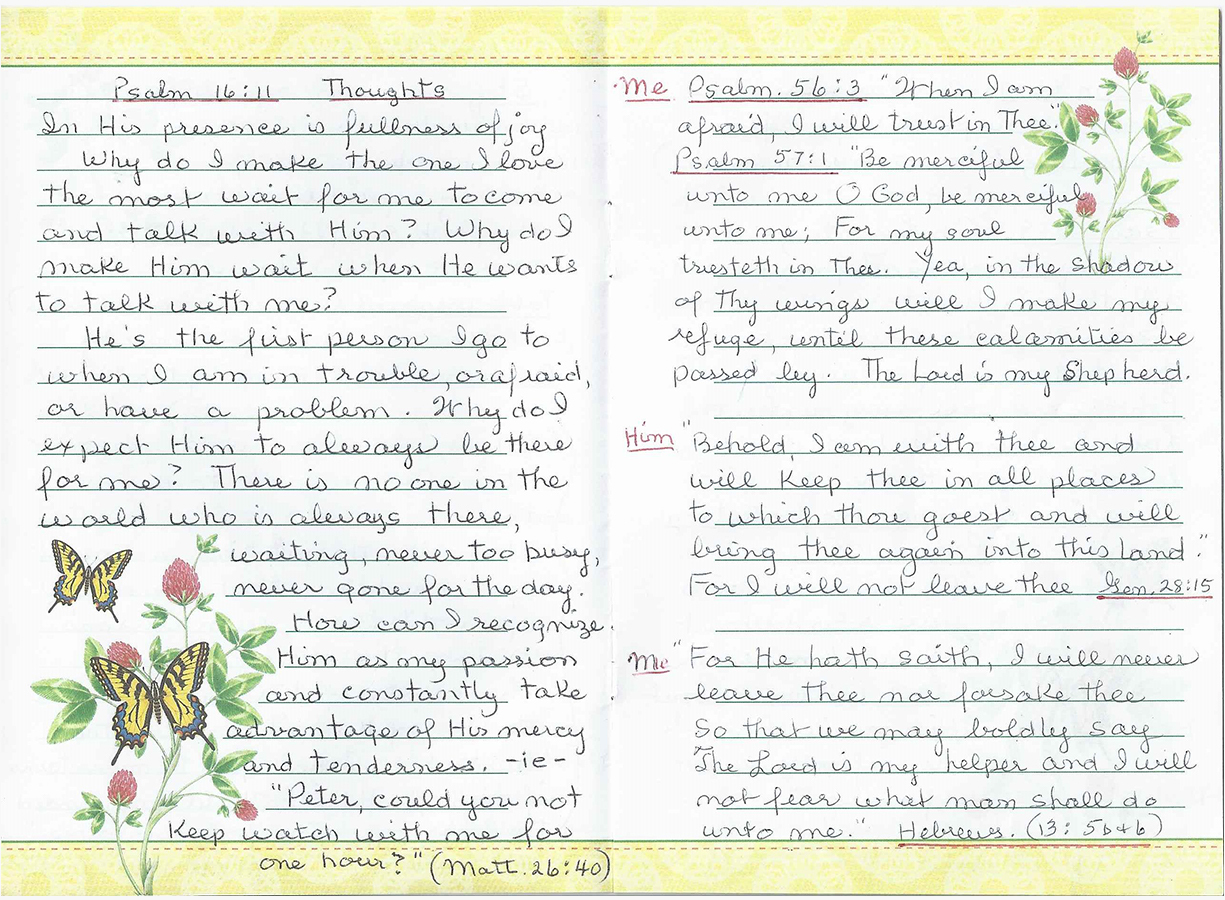 Psalm 16:11 Thoughts
In His presence is fullness of joy
Why do I make the one I love
the most wait for me to come
and talk with Him? Why do I
make Him wait when He wants
to talk with me?
He's the first person I go to
when I am in trouble, or afraid,
or have a problem. Why do I
expect Him to always be there
for me? There is no one in the
world who is always there,
waiting, never too busy,
never gone for the day.
How can I recognize
Him as my passion
and constantly take
advantage of His mercy
and tenderness. -ie-
"Peter, could you not
keep watch with me for
one hour?" (Matt. 26:40)
Me Psalm. 56:3 "When I am
afraid, I will trust in Thee."
Psalm 57:1 "Be merciful
unto me O God, be merciful
unto me; For my soul
trusteth in Thee. Yea, in the shadow
of Thy wings will I make my
refuge, until these calamities be
passed by. The Lord is my Shepherd.
Him "Behold, I am with thee and
will keep thee in all places
to which thou goest and will
bring thee again into this land."
For I will not leave thee Gen. 28:15
Me "For He hath saith, I will never
leave thee nor forsake thee
So that we may boldly say
The Lord is my helper and I will
not fear what man shall do
unto me." Hebrews. (13: 5b+6)